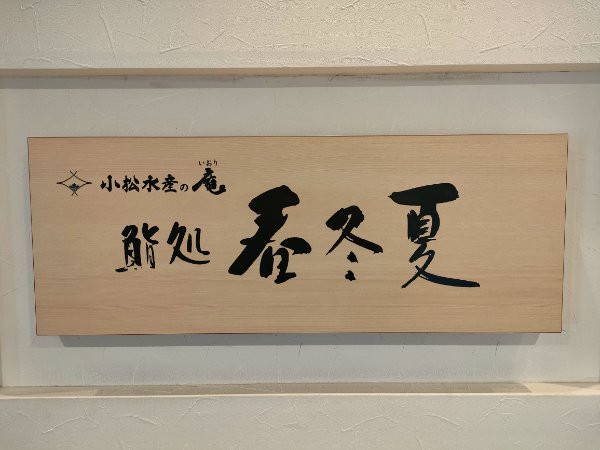 小松水産の庵
いおり
鮨処 春冬夏